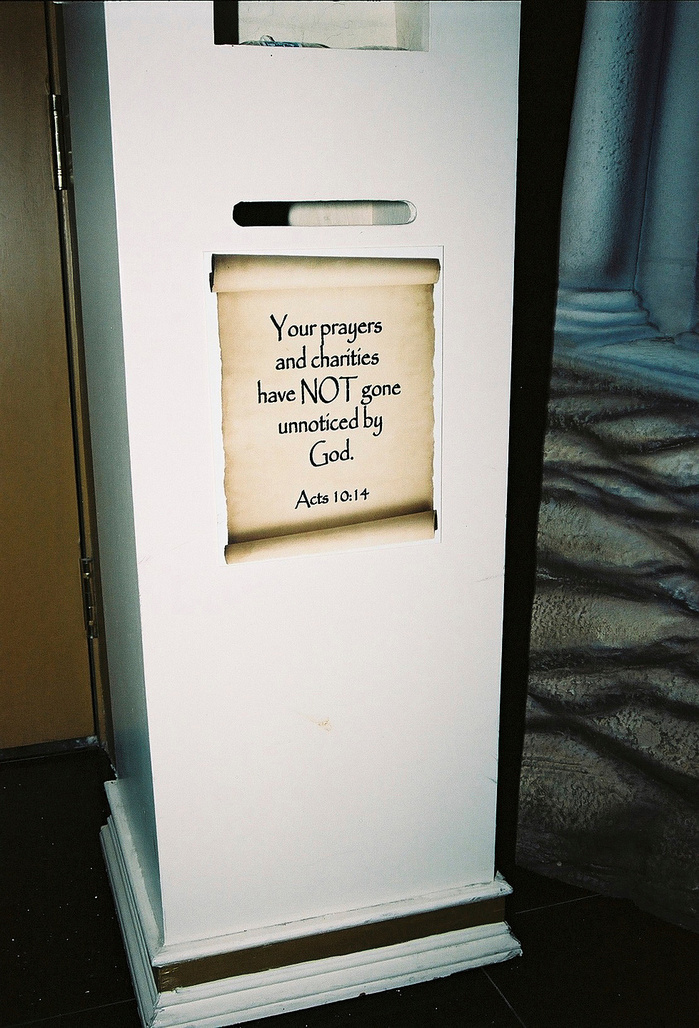 Your prayers
and charities
have NOT gone
unnoticed by
God.
Acts 10:14